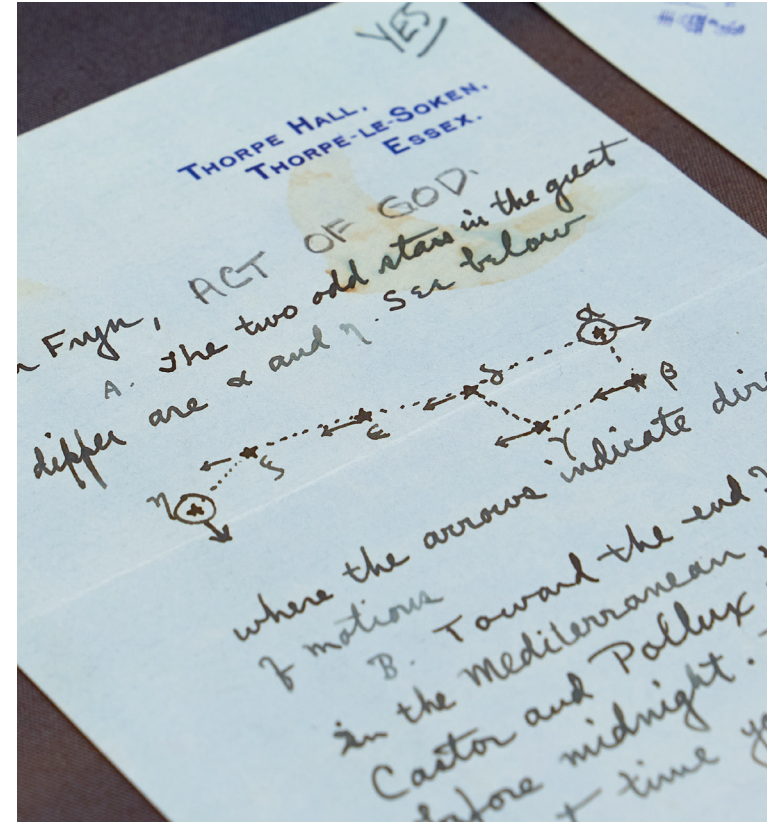 YES
THORPE HALL,
THORPE-LE-SOKEN,
ESSEX.
ACT OF GOD.
Fryn,
A. The two odd stars in the great
dipper are α and η. See below
α
δ
β
ε
γ
ζ
η
where the arrows indicate
of motions
B. Toward the end
in the Mediterranean,
Castor and Pollux
before midnight.
time